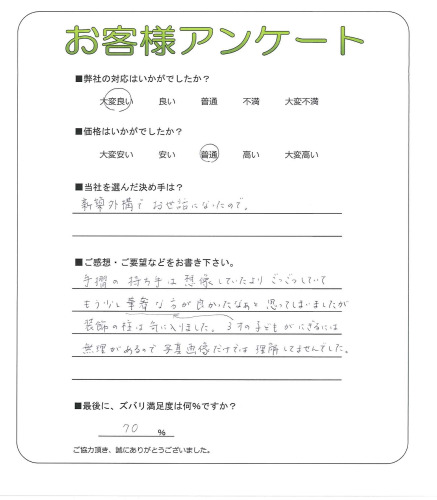 お客様アンケート
■弊社の対応はいかがでしたか?
大変良い 良い 普通 不満 大変不満
■価格はいかがでしたか?
大変安い 安い 普通 高い 大変高い
■当社を選んだ決め手は?
新築外構でお世話になったので。
■ご感想・ご要望などをお書き下さい。
手摺の持ち手は想像していたよりごつごつしていて
もう少し華奢な方が良かったなぁと思ってしまいましたが
装飾の柱は気に入りました。3才の子どもがにぎるには
無理があるので写真画像だけでは理解してませんでした。
■最後に、ズバリ満足度は何%ですか?
70 %
ご協力頂き、誠にありがとうございました。